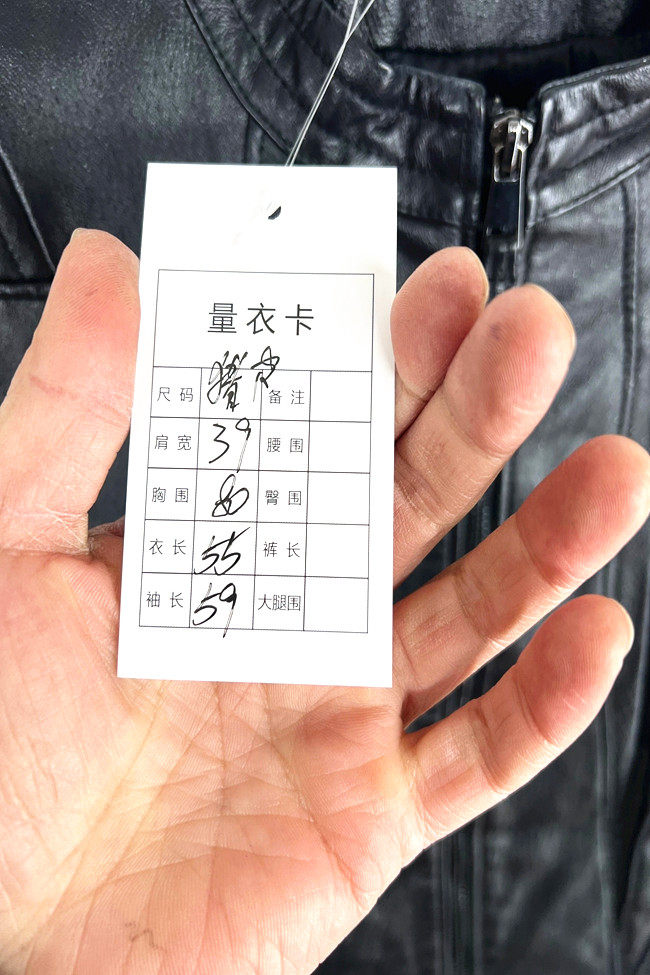 量衣卡
尺码 备注
肩宽 39 腰围
胸围 80 臀围
衣长 55 裤长
袖长 59 大腿围